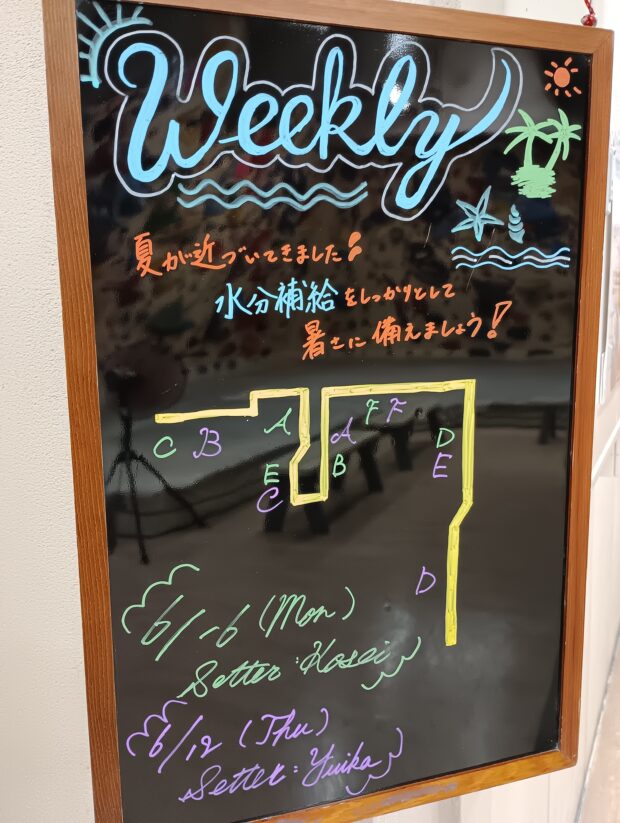 Weekly
夏が近づいてきました!
水分補給をしっかりとして
暑さに備えましょう!
C B A A F F D
E B E
C
D
6/-6 (Mon)
Setter: Kosei
6/12 (Thu)
Setter: Yuika